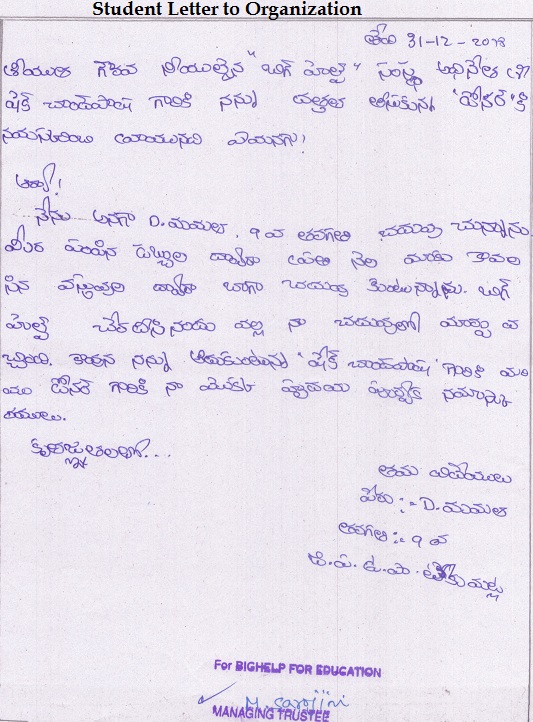 Student Letter to Organization
తేది 31-12-2018
శ్రీయుత గౌరవ నీయులైన "బిగ్ హెల్ప్" సంస్థ అధినేత శ్రీ
షేక్ చాంద్‌పాష గారికి నన్ను దత్తత తీసుకున్న "డోనర్" కి
నమస్కరించి వ్రాయునది ఏమనగా!
ఆర్యా!
నేను అనగా D.మమత, 9 వ తరగతి చదువు చున్నాను.
మీరు పంపిన డబ్బుల ద్వారా ప్రతి నెల మాకు కావల
సిన వస్తువుల ద్వారా బాగా చదువు కుంటున్నాను. బిగ్
హెల్ప్ చేరినందు వల్ల నా చదువులలో మార్పు వ
చ్చింది. కావున నన్ను ఆదుకుంటున్న "షేక్ చాంద్‌పాష" గారికి మరి
యు డోనర్ గారికి నా యొక్క హృదయ పూర్వక నమస్కా
రములు.
కృతజ్ఞతలతో...
తమ విధేయులు
పేరు :- D.మమత
తరగతి :- 9 వ
జి.ప.ఉ.పా.
For BIGHELP FOR EDUCATION
M. Sarojini
MANAGING TRUSTEE